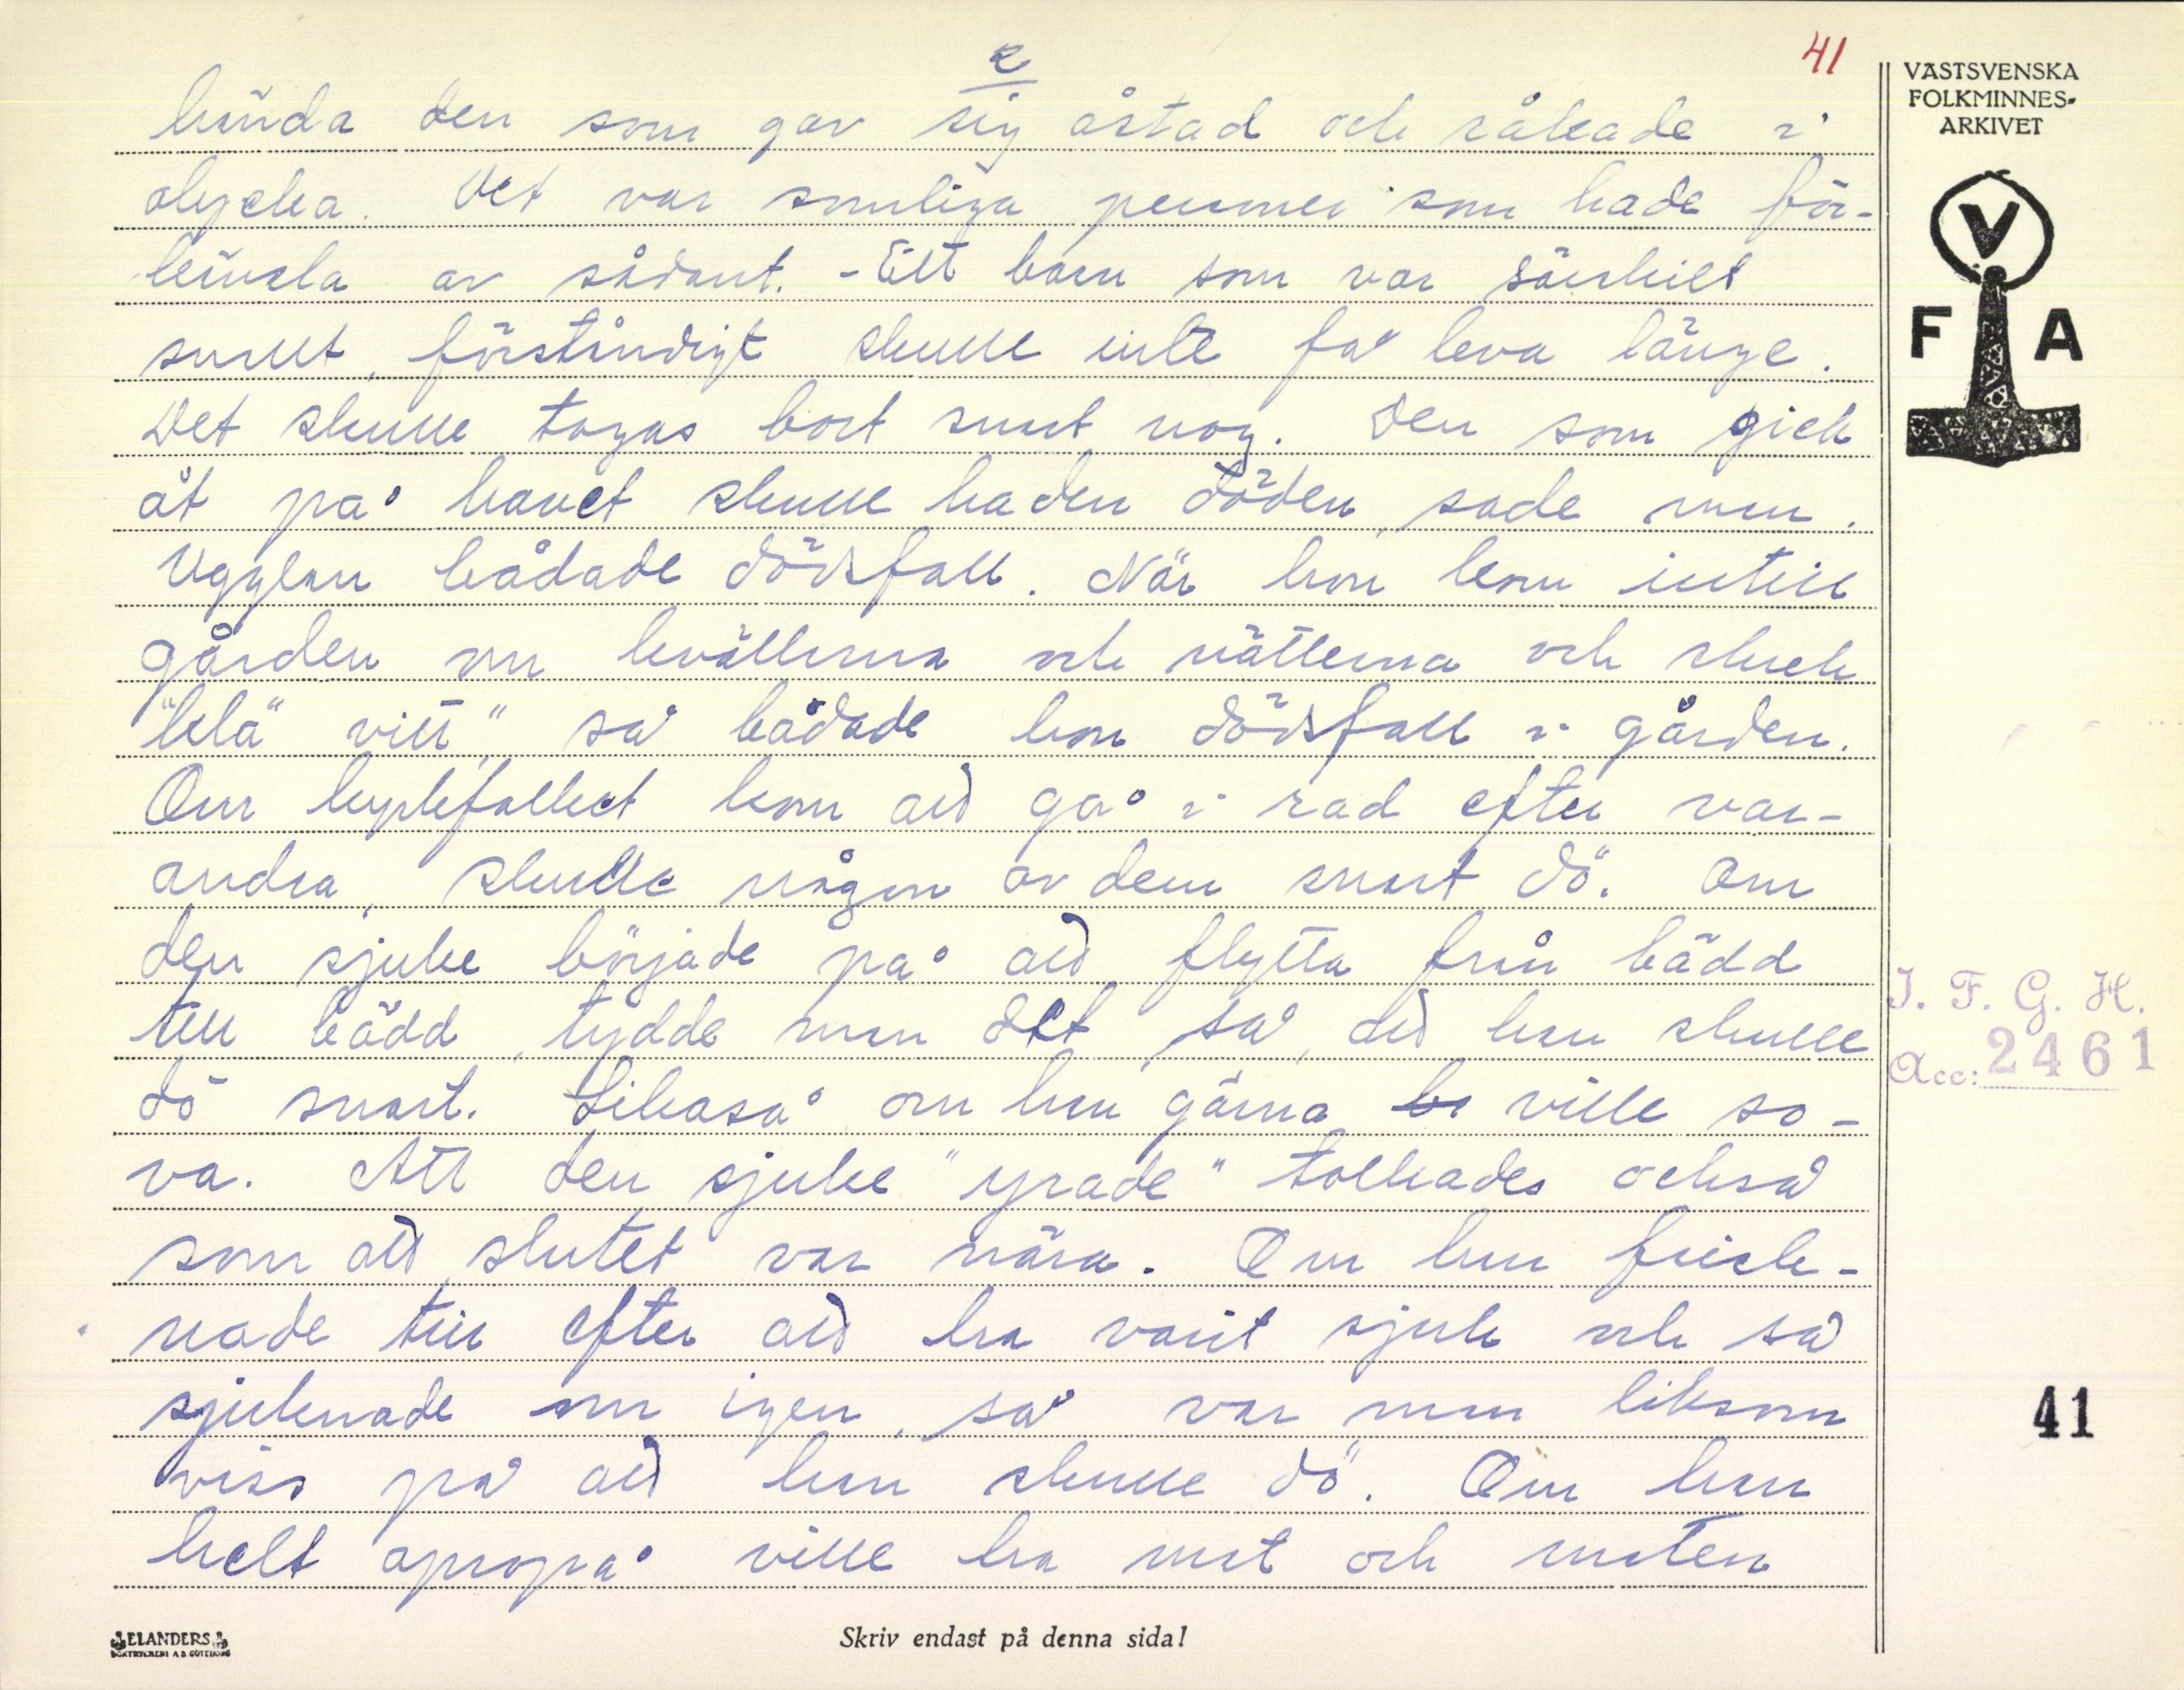 2
41
hända den som gav sig åstad och råkade i
olycka. Det var somliga personer som hade för-
känsla av sådant. - Ett barn som var särskilt
snällt, förståndigt skulle inte få leva länge.
Det skulle tagas bort snart nog. Den som gick
åt på havet skulle ha den döden, sade man.
Ugglan bådade dödsfall. När hon kom intill
gården om kvällarna och nätterna och skrek
"klä" vitt" så bådade hon dödsfall i gården.
Om kyrkfolket kom att gå i rad efter var-
andra, skulle någon av dem snart dö. Om
den sjuke började på att flytta från bädd
till bädd, tydde man det så, att han skulle
dö snart. Likaså om han gärna ville so-
va. Att den sjuke "yrade" tolkades också
som att slutet var nära. Om han frisk-
nade till efter att ha varit sjuk och så
sjuknade om igen, så var man liksom
viss på att han skulle dö. Om han
helt apropå ville ha mat och maten
VÄSTSVENSKA
FOLKMINNES-
ARKIVET
V
F A
I. F. G. H.
Acc: 2461
41
ELANDERS
BOKTRYCKERI A.B. GÖTEBORG
Skriv endast på denna sida!